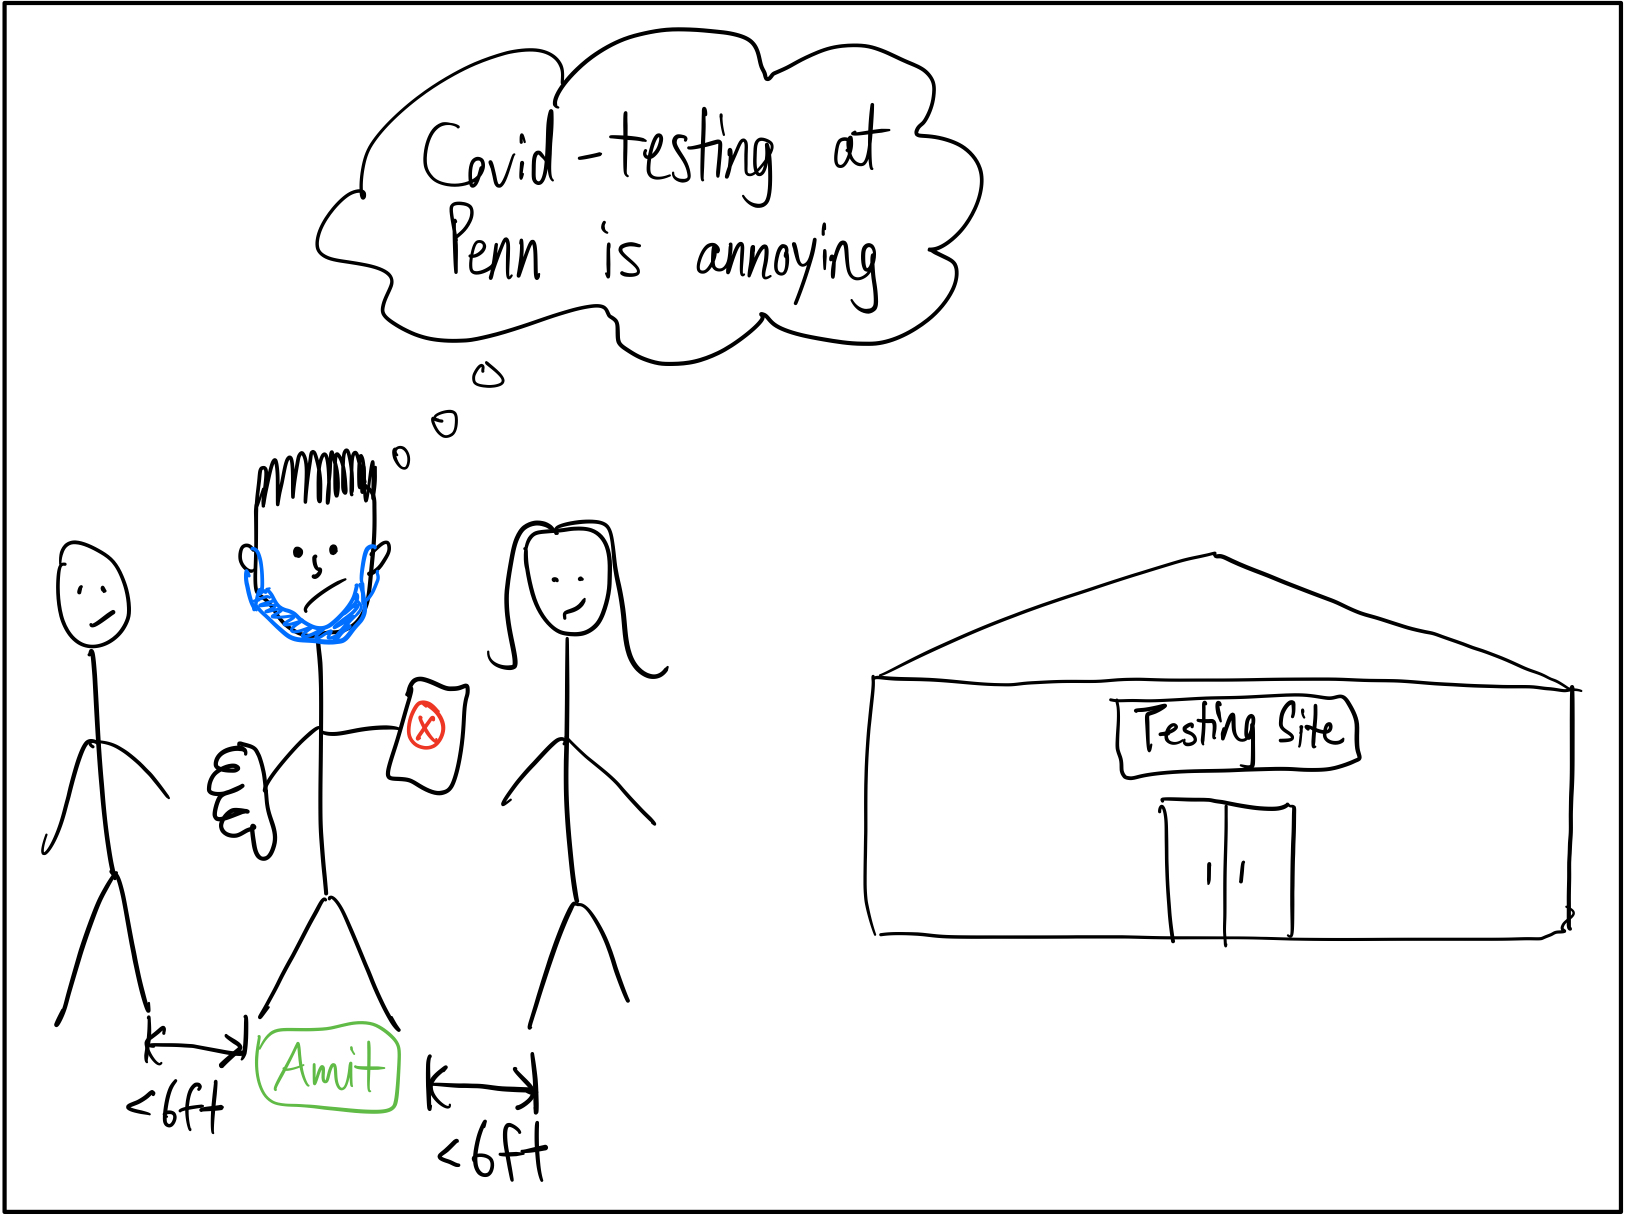 Covid-testing at
Penn is annoying
X
Testing Site
Amit
<6ft
<6ft